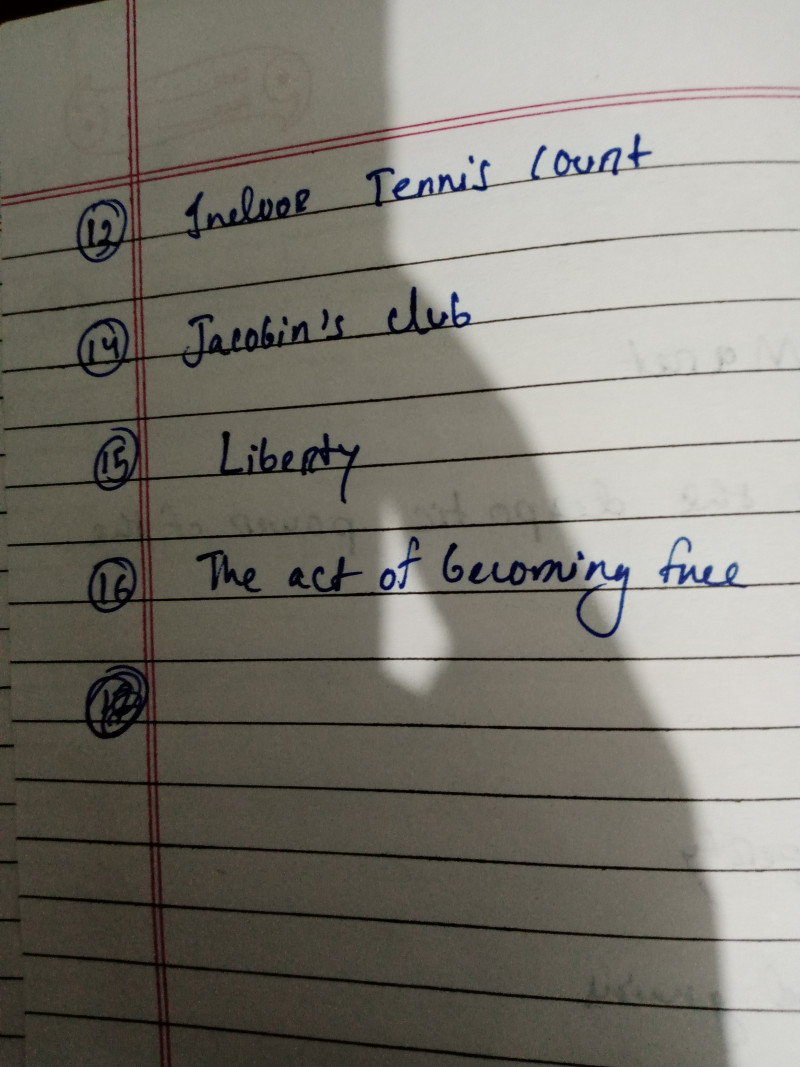 12 Indoor Tennis Court
14 Jacobin's club
15 Liberty
16 The act of becoming free